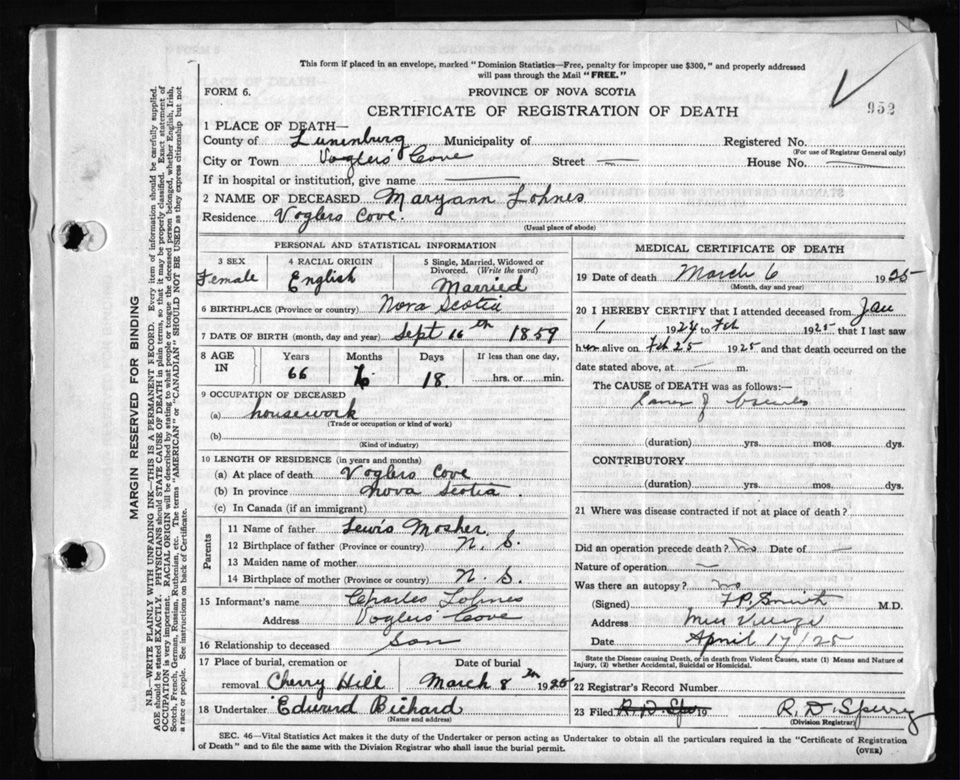 This form if placed in an envelope, marked "Dominion Statistics—Free, penalty for improper use $300," and properly addressed
will pass through the Mail "FREE."
FORM 6.
PROVINCE OF NOVA SCOTIA
952
CERTIFICATE OF REGISTRATION OF DEATH
1 PLACE OF DEATH—
County of Lunenburg Municipality of
Registered No.
(For use of Registrar General only)
City or Town Voglers Cove Street — House No.
If in hospital or institution, give name
2 NAME OF DECEASED Maryann Lohnes
Residence Voglers Cove.
(Usual place of abode)
PERSONAL AND STATISTICAL INFORMATION
3 SEX
Female
4 RACIAL ORIGIN
English
5 Single, Married, Widowed or
Divorced. (Write the word)
Married
6 BIRTHPLACE (Province or country) Nova Scotia
7 DATE OF BIRTH (month, day and year) Sept 16th 1859
8 AGE IN
Years Months Days If less than one day,
66 18. hrs. or min.
9 OCCUPATION OF DECEASED
(a) housework
(Trade or occupation or kind of work)
(b)
(Kind of industry)
10 LENGTH OF RESIDENCE (in years and months)
(a) At place of death Voglers Cove
(b) In province Nova Scotia.
(c) In Canada (if an immigrant)
Parents
11 Name of father Lewis Mosher
12 Birthplace of father (Province or country) N. S.
13 Maiden name of mother
14 Birthplace of mother (Province or country) N. S.
15 Informant's name Charles Lohnes
Address Voglers Cove
16 Relationship to deceased Son
17 Place of burial, cremation or Date of burial
removal Cherry Hill March 8th 1925
18 Undertaker Edward Bichard
(Name and address)
MEDICAL CERTIFICATE OF DEATH
19 Date of death March 6 1925
(Month, day and year)
20 I HEREBY CERTIFY that I attended deceased from Jan
1 1924 to Feb 1925 that I last saw
h alive on Feb 25 1925 and that death occurred on the
date stated above, at — m.
The CAUSE of DEATH was as follows:—
(duration) yrs. mos. dys.
CONTRIBUTORY
(duration) yrs. mos. dys.
21 Where was disease contracted if not at place of death?
Did an operation precede death? No Date of —
Nature of operation —
Was there an autopsy? no
(Signed) Smith M.D.
Address
Date April 17/25
State the Disease causing Death, or in death from Violent Causes, state (1) Means and Nature of
Injury, (2) whether Accidental, Suicidal or Homicidal.
22 Registrar's Record Number
23 Filed R. D. Spe 19 R. D. Sperry
(Division Registrar)
SEC. 46—Vital Statistics Act makes it the duty of the Undertaker or person acting as Undertaker to obtain all the particulars required in the "Certificate of Registration
of Death" and to file the same with the Division Registrar who shall issue the burial permit.
(OVER)
MARGIN RESERVED FOR BINDING
N.B.—WRITE PLAINLY WITH UNFADING INK—THIS IS A PERMANENT RECORD. Every item of information should be carefully supplied.
AGE should be stated EXACTLY. PHYSICIANS should STATE CAUSE OF DEATH in plain terms, so that it may be properly classified. Exact statement of
OCCUPATION is very important. RACIAL ORIGIN will be described by stating to what people or tongue the deceased person belonged, whether English, Irish,
Scotch, French, German, Russian, Ruthenian, etc. The terms "AMERICAN" or "CANADIAN" SHOULD NOT BE USED as they express citizenship but not
a race or people. See instructions on back of Certificate.